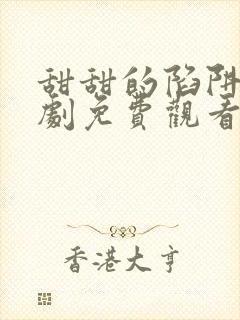 甜甜的陷阱
劇免費觀看
香港大亨